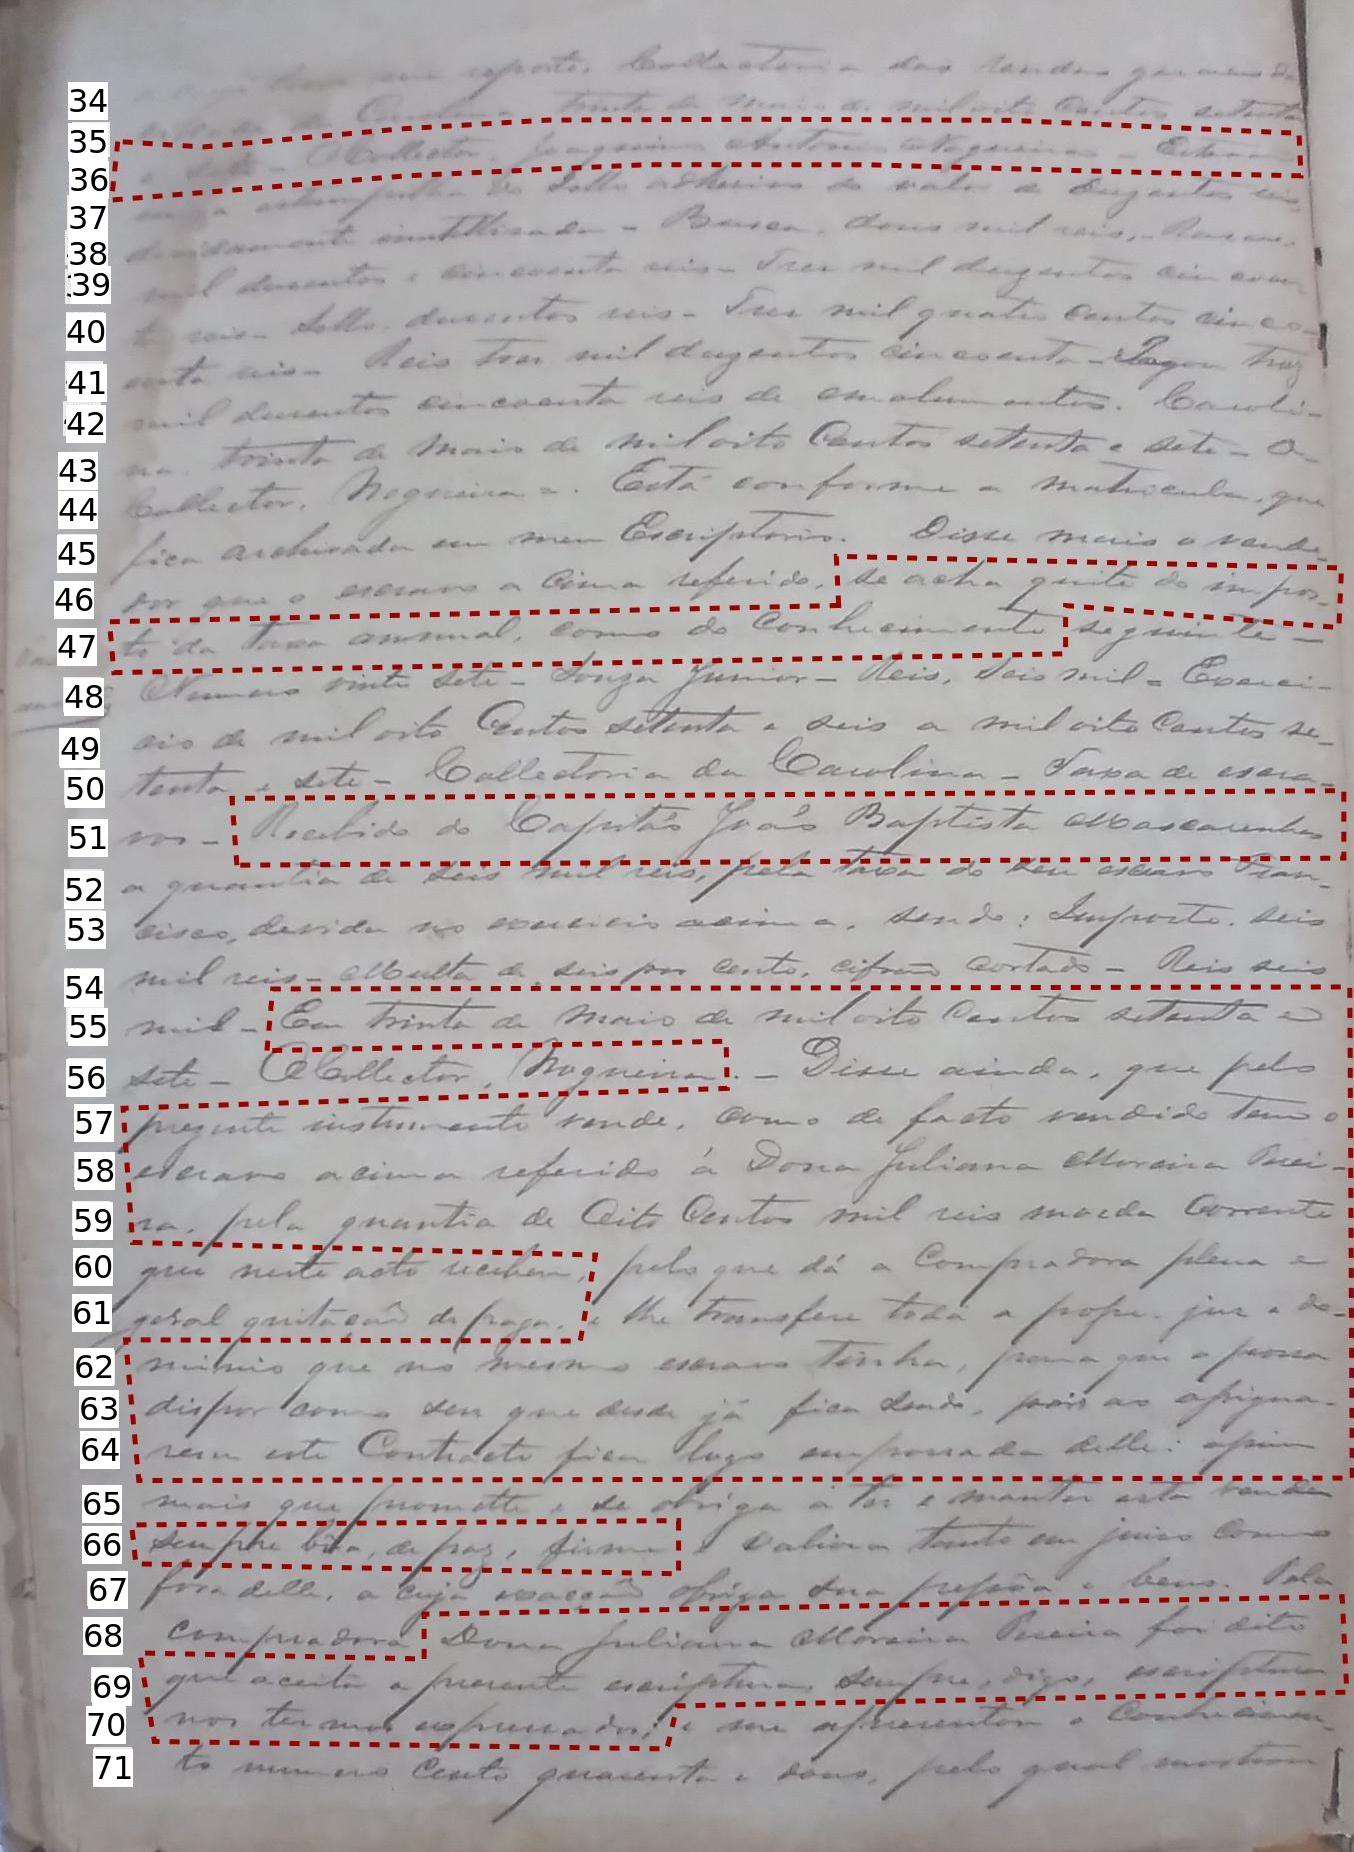 34 reporto. Collectoria das rendas geraes da
35 Carolina trinta de maio de mil oito centos setenta
36 e sete - O Collector, Joaquim Antonio Nogueira - Estam
37 pilha do Sello adhesivo do valor de duzentos reis,
38 devidamente inutillisada - Busca, dous mil reis, - Rasa
39 mil duzentos e cincoenta reis - Tres mil duzentos cincoen
40 ta reis - Sello, duzentos reis - Tres mil quatro centos cinco-
41 enta reis - Reis tres mil duzentos cincoenta - Pagou trez
42 mil duzentos cincoenta reis de emolumentos. Caroli-
43 na, trinta de Maio de mil oito Centos setenta e sete - O
44 Collector, Nogueira =. Está conforme a matricula, que
45 fica archivada em meu Escriptorio. Disse mais o vende-
46 dor que o escravo a cima referido, se acha quite do impos-
47 to da taxa annual, como do Conhecimento seguinte -
48 Numero vinte sete - Souza Junior - Reis, Seis mil = Exerci-
49 cio de mil oito Centos setenta e seis a mil oito Centos se-
50 tenta e sete - Collectoria da Carolina - Taxa de escra-
51 vos - Recebido do Capitão João Baptista Mascarenhas
52 a quantia de seis mil reis, pela taxa do seu escravo Fran-
53 cisco, devida no exercicio acima, sendo: Imposto, seis
54 mil reis - Multa de seis por cento, cifrão cortado - Reis seis
55 mil - Em trinta de Maio de mil oito Centos setenta e
56 sete - O Collector, Nogueira. - Disse ainda, que pelo
57 prezente instrumento vende, como de facto vendido tem o
58 escravo acima referido á Dona Juliana Moreira Perei-
59 ra, pela quantia de Oito Centos mil reis moeda Corrente
60 que neste acto recebeu, pelo que dá a Compradora plena e
61 geral quitação de paga, e lhe transfere toda a posse, jus e do-
62 minio que no mesmo escravo tinha, para que o possa
63 dispor como seu que desde já fica sendo, pois ao assigna-
64 rem este Contracto fica logo empossada delle: assim
65 mais que promette e se obriga a ter e manter esta venda
66 sempre bôa, de paz, firme e valiosa tanto em juiso como
67 fora delle, a cuja exacção obriga sua pessôa e bens. Pela
68 compradora Dona Juliana Moreira Pereira foi dito
69 que aceita a presente escriptura, sempre, digo, escriptura
70 nos termos expressados; e me apresentou o Conhecimen-
71 to numero Cento quarenta e dous, pelo qual mostrou